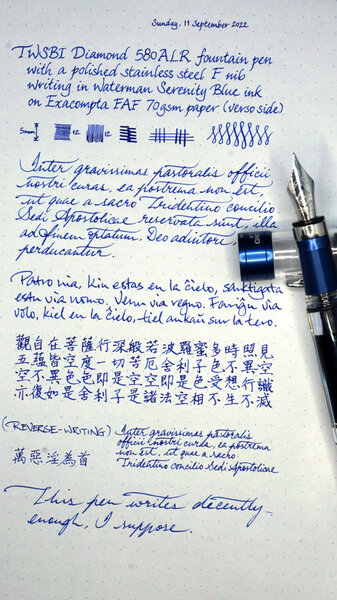 Sunday, 11 September 2022
TWSBI Diamond 580ALR fountain pen
with a polished stainless steel F nib
writing in Waterman Serenity Blue ink
on Exacompta FAF 70gsm paper (verso side)
5mm 12 12
Inter gravissimas pastoralis officii
nostri curas, ea postrema non est,
ut quae a sacro Tridentino concilio
Sedi Apostolicae reservata sint, illa
ad finem optatum, Deo adiutore,
perducantur.
Patro nia, kiu estas en la ĉielo, sanktigata
estu via nomo. Venu via regno. Fariĝu via
volo, kiel en la ĉielo, tiel ankaŭ sur la tero.
觀自在菩薩行深般若波羅蜜多時照見
五蘊皆空度一切苦厄舍利子色不異空
空不異色色即是空空即是色受想行識
亦復如是舍利子是諸法空相不生不滅
(REVERSE-WRITING) Inter gravissimas pastoralis
officii nostri curas, ea postrema
non est, ut quae a sacro
萬惡淫為首 Tridentino concilio Sedi Apostolicae
This pen writes decently
enough, I suppose.